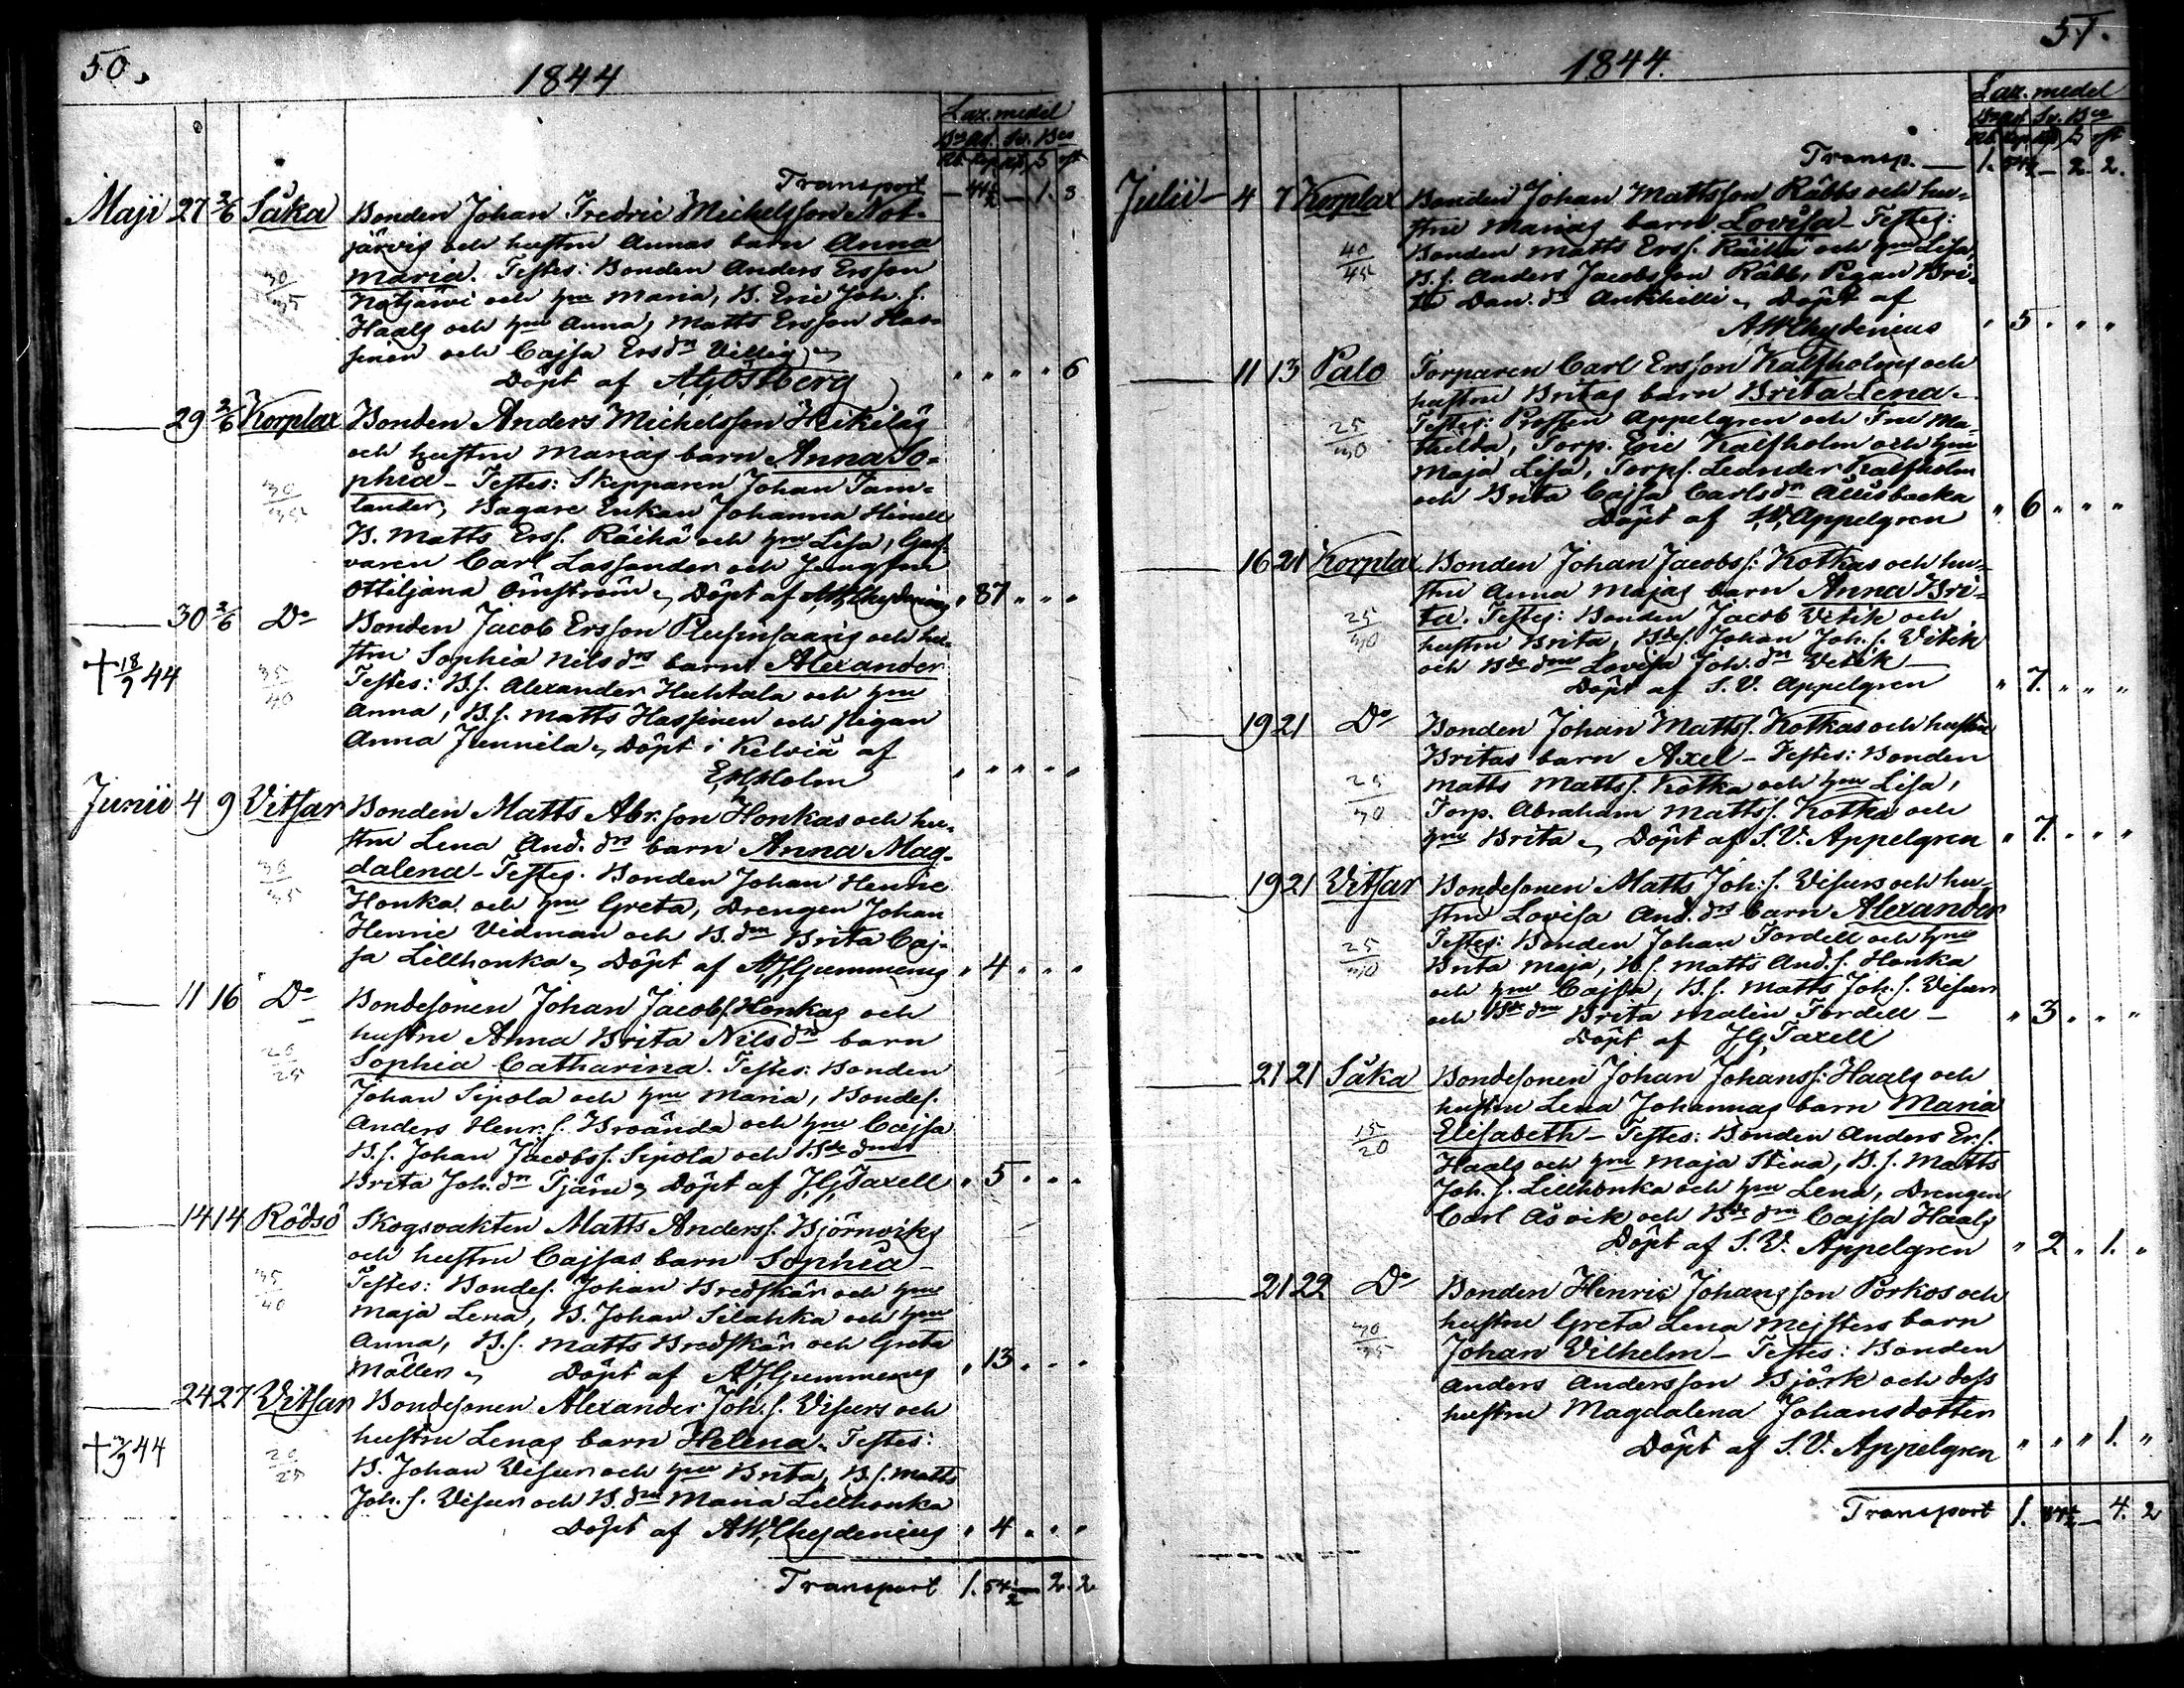 50.
1844
Laz. medel
Transport — 44½ — 1. 3
Maji 27 2/6 Såka Bonden Johan Fredric Michelsson Not-
järvis och hustru Annas barn Anna
Maria. Testes: Bonden Anders Ersson
30/35 Notjärvi och hru Maria, B. Eric Joh. s.
Haals och hru Anna, Matts Ersson Has-
sinen och Cajsa Ersdr Villig
Döpt af AGÖstberg " " " " 6
29 2/6 Korplax Bonden Anders Michelsson Heikiläs
och hustru Marias barn Anna So-
phia – Testes: Skepparen Johan Tam-
30/35 lander, Bagare Enkan Johanna Hinell
B. Matts Erss. Räihä och hru Lisa, Garf-
varen Carl Lassander och Jungfru
Ottiljana Öhnström, Döpt af AWChydenius " 37 " " "
30 2/6 Do Bonden Jacob Ersson Plusinsaaris och hu-
stru Sophia Nilsdrs barn Alexander
† 18/7 44 35/40 Testes: B.s. Alexander Huhtala och hru
Anna, B.s. Matts Hassinen och pigan
Anna Junnila, Döpt i Kelviå af
EHHolm " " " " "
Junii 4 9 Vitsar Bonden Matts Abr.son Honkas och hu-
stru Lena And. drs barn Anna Mag-
30/35 dalena – Testes. Bonden Johan Henric
Honka och hru Greta, Drengen Johan
Henric Vidman och B. dn Brita Caj-
sa Lillhonka, Döpt af AHGummerus " 4 " " "
11 16 Do Bondesonen Johan Jacobs. Honkas och
hustru Anna Brita Nilsdrs barn
20/25 Sophia Catharina. Testes: Bonden
Johan Sipola och hru Maria, Bondes.
Anders Henr. s. Broända och hru Cajsa
B.s. Johan Jacobss. Sipola och Bde dn
Brita Joh. dr Tjäru, Döpt af JGTaxell " 5 " " "
14 14 Rödsö Skogsvakten Matts Anderss. Björnviks
och hustru Cajsas barn Sophia –
35/40 Testes: Bondes. Johan Bredskär och hru
Maja Lena, B. Johan Silahka och hru
Anna, B.s. Matts Bredskär och Greta
Möller, Döpt af AHGummerus " 13 " " "
24 27 Vitsar Bondesonen Alexander Joh. s. Visurs och
hustru Lenas barn Helena. Testes:
† 44 20/25 B. Johan Visuri och hru Brita, B.s. Matts
Joh. s. Visuri och B. dn Maria Lillhonka
Döpt af AWChydenius " 4 " " "
Transport 1. 54½ — 2. 2

51.
1844.
Laz. medel
Transp. — 1. 54½ — 2. 2.
Julii – 4 7 Korplax Bonden Johan Mattsson Räbbs och hu-
stru Marias barn Lovisa – Testes:
40/45 Bonden Matts Erss. Räihä och hru Lisa,
B.s. Anders Jacobsson Räbb, Pigan Bri-
ta Dan. dr Ankkilli, Döpt af
AWChydenius " 5 " " "
11 13 Palo Torparen Carl Ersson Kalfholms och
hustru Britas barn Brita Lena –
25/30 Testes: Prosten Appelgren och Fru Ma-
thilda, Torp. Eric Kalfholm och hru
Maja Lisa, Torps. Leander Kalfholm
och Brita Cajsa Carlsdr Ållisbacka
Döpt af SVAppelgren " 6 " " "
16 21 Korplax Bonden Johan Jacobss. Kotkas och hu-
stru Anna Majas barn Anna Bri-
25/30 ta. Testes: Bonden Jacob Vitick och
hustru Brita, Bdes. Johan Joh. s. Vitik
och Bde dn Lovisa Joh. dr Vitik –
Döpt af S. V. Appelgren " 7. " " "
19 21 Do Bonden Johan Mattss. Kotkas och hustru
Britas barn Axel – Testes: Bonden
25/30 Matts Mattss. Kotka och hru Lisa,
Torp. Abraham Mattss. Kotka och
hru Brita, Döpt af S. V. Appelgren " 7. " " "
19 21 Vitsar Bondesonen Matts Joh: s. Visurs och hu-
stru Lovisa And. drs barn Alexander
25/30 Testes: Bonden Johan Fordell och hru
Brita Maja, B.s. Matts And. s. Honka
och hru Cajsa, B.s. Matts Joh. s. Visuri
och Bde dn Brita Malin Fordell –
Döpt af JGTaxell " 3 " " "
21 21 Såka Bondesonen Johan Johanss: Haals och
hustru Lena Johannas barn Maria
15/20 Elisabeth – Testes: Bonden Anders Er. s.
Haals och hru Maja Stina, B.s. Matts
Joh. s. Lillhonka och hru Lena, Drengen
Carl Åsvik och Bde dn Cajsa Haals
Döpt af S. V. Appelgren " 2 " 1. "
21 22 Do Bonden Henric Johansson Porkos och
hustru Greta Lena Mejsters barn
30/35 Johan Vilhelm – Testes: Bonden
Anders Andersson Björk och dess
hustru Magdalena Johansdotter
Döpt af S. V. Appelgren " " " 1. "
Transport 1. 84½ — 4. 2